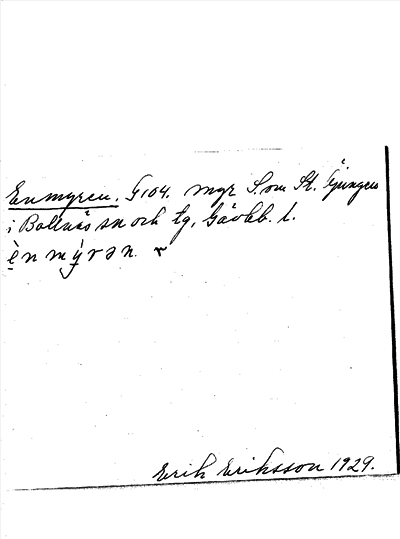 Enmyren. G104. myr S. om St. Öjungen
i Bollnäs sn och tg, Gävlb. l.
è̱n mý̱rən.
Erik Eriksson 1929.